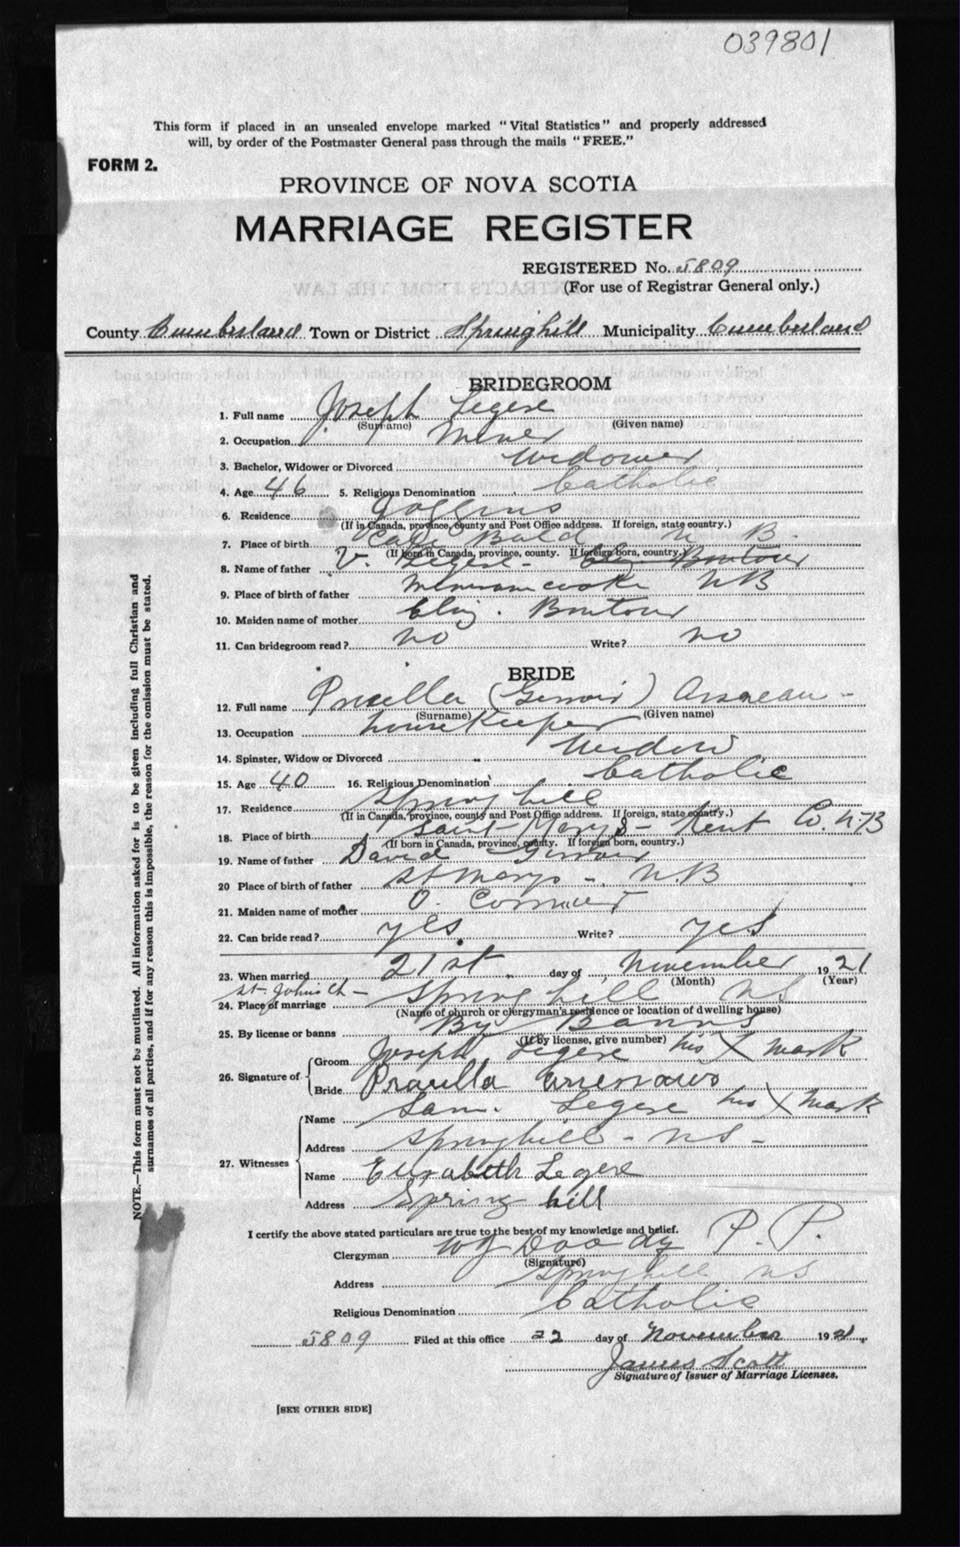 039801
This form if placed in an unsealed envelope marked "Vital Statistics" and properly addressed
will, by order of the Postmaster General pass through the mails "FREE."
FORM 2.
PROVINCE OF NOVA SCOTIA
MARRIAGE REGISTER
REGISTERED No. 5809
(For use of Registrar General only.)
County Cumberland Town or District Springhill Municipality Cumberland
BRIDEGROOM
1. Full name Joseph Legere
(Surname) (Given name)
2. Occupation Miner
3. Bachelor, Widower or Divorced Widower
4. Age 46 5. Religious Denomination Catholic
6. Residence Joggins
(If in Canada, province, county and Post Office address. If foreign, state country.)
7. Place of birth Cape Bald N B.
(If born in Canada, province, county. If foreign born, country.)
8. Name of father V. Legere -
9. Place of birth of father Memramcooke NB
10. Maiden name of mother Eliz. Boutour
11. Can bridegroom read? no Write? no
BRIDE
12. Full name Priscilla (Girroir) Arseneau -
(Surname) (Given name)
13. Occupation housekeeper
14. Spinster, Widow or Divorced Widow
15. Age 40 16. Religious Denomination Catholic
17. Residence Springhill
(If in Canada, province, county and Post Office address. If foreign, state country.)
18. Place of birth Saint Marys - Kent Co. NB
(If born in Canada, province, county. If foreign born, country.)
19. Name of father David Girroir
20 Place of birth of father St Marys -. N.B
21. Maiden name of mother O. Cormier
22. Can bride read? yes. Write? yes
23. When married 21st day of November 1921
(Month) (Year)
St-Johns Ch -
24. Place of marriage Springhill NS
(Name of church or clergyman's residence or location of dwelling house)
25. By license or banns By Banns
(If by license, give number)
26. Signature of Groom Joseph Legere his X mark
Bride
27. Witnesses Name Sam. Legere his X mark
Address Springhill - NS -
Name Elizabeth Legere
Address Spring hill
I certify the above stated particulars are true to the best of my knowledge and belief.
Clergyman WJ Doody P. P.
(Signature)
Address Springhill NS
Religious Denomination Catholic
5809 Filed at this office 22 day of November 1921.
James Scott
Signature of Issuer of Marriage Licenses.
[SEE OTHER SIDE]
NOTE.—This form must not be mutilated. All information asked for is to be given including full Christian and
surnames of all parties, and if for any reason this is impossible, the reason for the omission must be stated.